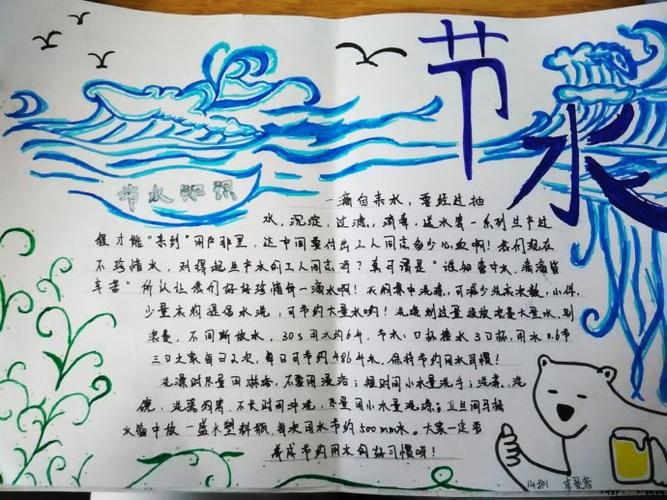 节水
节水知识
一滴自来水，要经过抽
水，沉淀，过滤，消毒，送水等一系列生产过
程才能"来到"用户那里，这中间要付出工人同志多少心血啊！我们现在
不珍惜水，对得起生产水的工人同志吗？真可谓是"谁知壶中水，滴滴皆
辛苦"所以让我们好好珍惜每一滴水啊！衣物集中洗涤，可减少洗衣次数，小件，
少量衣物提倡水洗，可节约大量水哟！洗涤剂过量投放浪费大量水，刷
不间断放水，30s用水约6升，节水，口杯接水3口杯，用水0.6升
三口之家每日2次，每日可节约486升水，保持节约用水习惯！
洗澡时尽量用淋浴，不要用浸浴；短时间小水量洗手；洗菜、洗
碗，洗莴笋，不长时间冲洗，尽量用小水量洗涤；卫生间马桶
水箱中放一盛水塑料瓶，每次用水节约500mm水。大家一定要
养成节约用水的好习惯呀！